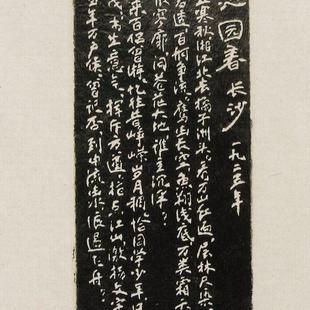 园春 长沙 一九二五年
寒秋湘江北去橘子洲头看万山红遍层林尽染
透百舸争流鹰击长空鱼翔浅底万类霜天
怅寥廓问苍茫大地谁主沉浮
来百侣曾游忆往昔峥嵘岁月稠恰同学少年风
茂书生意气挥斥方遒指点江山激扬文字
当年万户侯曾记否到中流击水浪遏飞舟